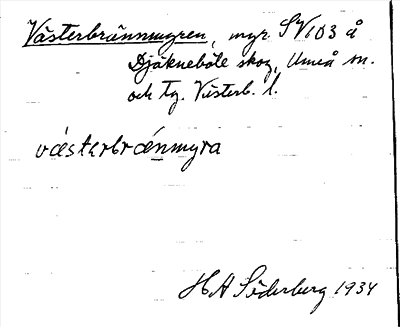 Västerbrännmyren, myr SV103 å
Djäkneböle skog, Umeå sn.
och tg. Västerb. l.
västerbränmyra
H A Söderberg 1934